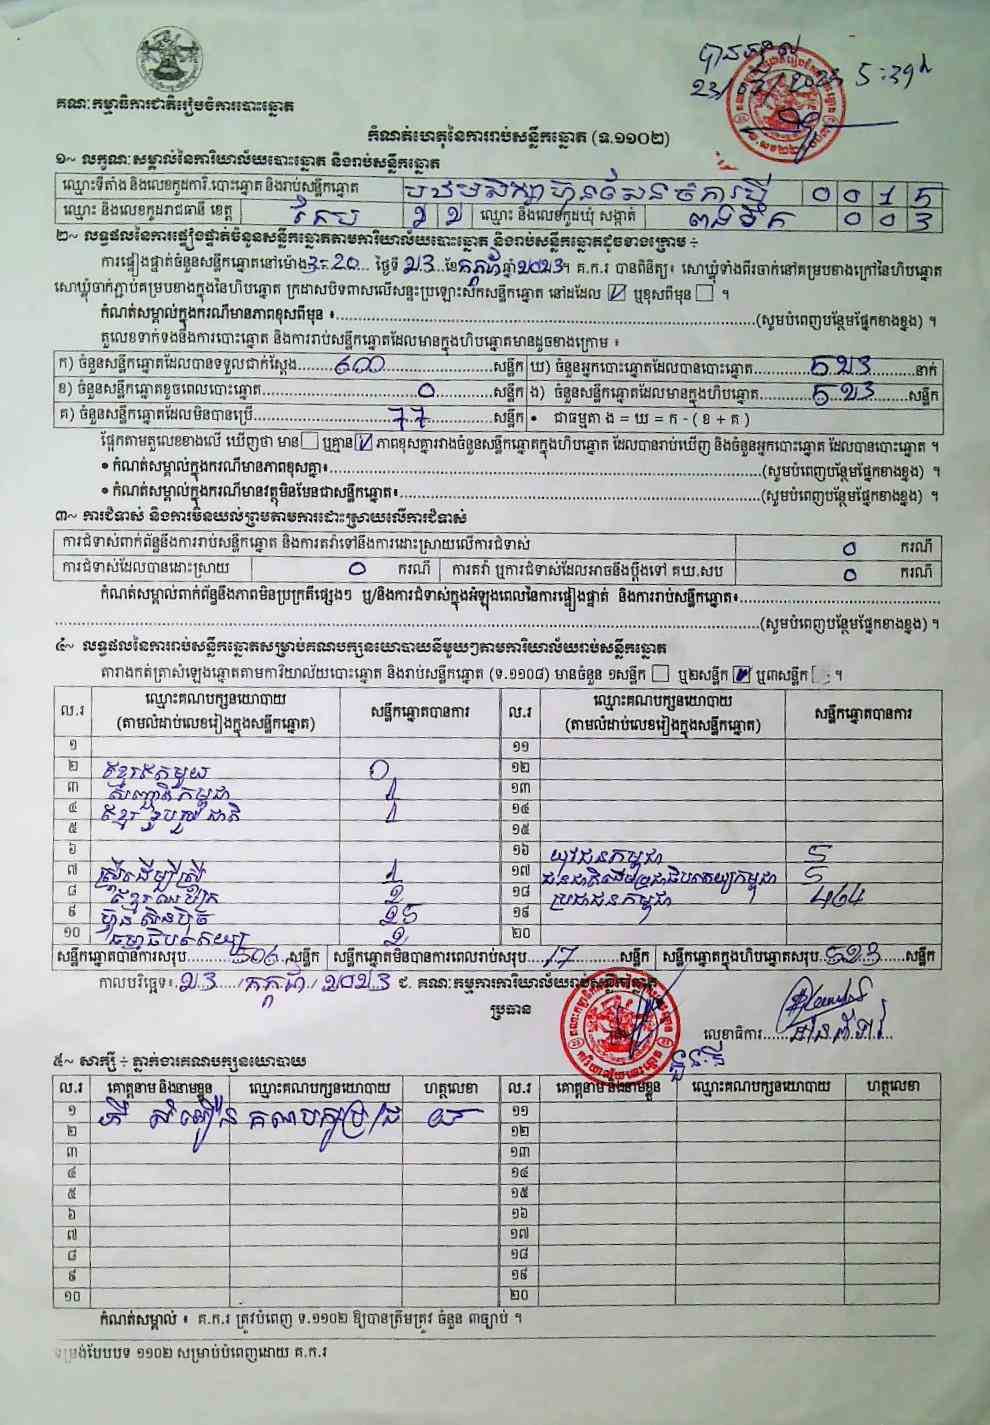 បានទទួល
23/07/2023 5:39h
គណៈកម្មាធិការជាតិរៀបចំការបោះឆ្នោត
កំណត់ហេតុនៃការរាប់សន្លឹកឆ្នោត (ទ.១១០២)
១~ លក្ខណៈសម្គាល់នៃការិយាល័យបោះឆ្នោត និងរាប់សន្លឹកឆ្នោត
ឈ្មោះទីតាំង និងលេខកូដការិ.បោះឆ្នោត និងរាប់សន្លឹកឆ្នោត 0 0 1 5
ឈ្មោះ និងលេខកូដរាជធានី ខេត្ត កែប ឈ្មោះ និងលេខកូដឃុំ សង្កាត់ 0 0 3
២~ លទ្ធផលនៃការផ្ទៀងផ្ទាត់ចំនួនសន្លឹកឆ្នោតតាមការិយាល័យបោះឆ្នោត និងរាប់សន្លឹកឆ្នោតដូចខាងក្រោម ÷
ការផ្ទៀងផ្ទាត់ចំនួនសន្លឹកឆ្នោតនៅម៉ោង 3:20 ថ្ងៃទី ២៣ ខែ កក្កដា ឆ្នាំ ២០២៣។ គ.ក.រ បានពិនិត្យ៖ សោឃ្លុំទាំងពីរចាក់នៅគម្របខាងក្រៅនៃហិបឆ្នោត
សោឃ្លុំចាក់ភ្ជាប់គម្របខាងក្នុងនៃហិបឆ្នោត ក្រដាសបិទពាសលើសន្ទះប្រឡោះស៊កសន្លឹកឆ្នោត នៅដដែល ☑ ឬខុសពីមុន ☐ ។
កំណត់សម្គាល់ក្នុងករណីមានភាពខុសពីមុន ៖ (សូមបំពេញបន្ថែមផ្នែកខាងខ្នង) ។
តួលេខទាក់ទងនឹងការបោះឆ្នោត និងការរាប់សន្លឹកឆ្នោតដែលមានក្នុងហិបឆ្នោតមានដូចខាងក្រោម ៖
ក) ចំនួនសន្លឹកឆ្នោតដែលបានទទួលជាក់ស្តែង ៦០០ សន្លឹក ឃ) ចំនួនអ្នកបោះឆ្នោតដែលបានបោះឆ្នោត ៥២៣ នាក់
ខ) ចំនួនសន្លឹកឆ្នោតខូចពេលបោះឆ្នោត 0 សន្លឹក ង) ចំនួនសន្លឹកឆ្នោតដែលមានក្នុងហិបឆ្នោត ៥២៣ សន្លឹក
គ) ចំនួនសន្លឹកឆ្នោតដែលមិនបានប្រើ 77 សន្លឹក • ជាធម្មតា ង = ឃ = ក - ( ខ + គ )
ផ្អែកតាមតួលេខខាងលើ ឃើញថា មាន ☐ ឬគ្មាន ☑ ភាពខុសគ្នារវាងចំនួនសន្លឹកឆ្នោតក្នុងហិបឆ្នោត ដែលបានរាប់ឃើញ និងចំនួនអ្នកបោះឆ្នោត ដែលបានបោះឆ្នោត ។
• កំណត់សម្គាល់ក្នុងករណីមានភាពខុសគ្នា៖ (សូមបំពេញបន្ថែមផ្នែកខាងខ្នង) ។
• កំណត់សម្គាល់ក្នុងករណីមានវត្ថុមិនមែនជាសន្លឹកឆ្នោត៖ (សូមបំពេញបន្ថែមផ្នែកខាងខ្នង) ។
៣~ ការជំទាស់ និងការមិនយល់ព្រមតាមការដោះស្រាយលើការជំទាស់
ការជំទាស់ពាក់ព័ន្ធនឹងការរាប់សន្លឹកឆ្នោត និងការតវ៉ាទៅនឹងការដោះស្រាយលើការជំទាស់ 0 ករណី
ការជំទាស់ដែលបានដោះស្រាយ 0 ករណី ការតវ៉ា ឬការជំទាស់ដែលអាចនឹងប្តឹងទៅ គឃ.សប 0 ករណី
កំណត់សម្គាល់ពាក់ព័ន្ធនឹងភាពមិនប្រក្រតីផ្សេងៗ ឬ/និងការជំទាស់ក្នុងអំឡុងពេលនៃការផ្ទៀងផ្ទាត់ និងការរាប់សន្លឹកឆ្នោត៖
(សូមបំពេញបន្ថែមផ្នែកខាងខ្នង) ។
៤~ លទ្ធផលនៃការរាប់សន្លឹកឆ្នោតសម្រាប់គណបក្សនយោបាយនីមួយៗតាមការិយាល័យរាប់សន្លឹកឆ្នោត
តារាងកត់ត្រាសំឡេងឆ្នោតតាមការិយាល័យបោះឆ្នោត និងរាប់សន្លឹកឆ្នោត (ទ.១១០៨) មានចំនួន ១សន្លឹក ☐ ឬ២សន្លឹក ☑ ឬ៣សន្លឹក ☐ ។
ល.រ ឈ្មោះគណបក្សនយោបាយ (តាមលំដាប់លេខរៀងក្នុងសន្លឹកឆ្នោត) សន្លឹកឆ្នោតបានការ ល.រ ឈ្មោះគណបក្សនយោបាយ (តាមលំដាប់លេខរៀងក្នុងសន្លឹកឆ្នោត) សន្លឹកឆ្នោតបានការ
១ ១១
២ ខ្មែរឯកភាព 0 ១២
៣ សញ្ជាតិកម្ពុជា 1 ១៣
៤ ខ្មែររួបរួមជាតិ 1 ១៤
៥ ១៥
៦ ១៦ យុវជនកម្ពុជា 5
៧ ស្ត្រីដើម្បីស្ត្រី 1 ១៧ ជនជាតិដើមប្រជាធិបតេយ្យកម្ពុជា 5
៨ ២ ១៨ ប្រជាជនកម្ពុជា ៤៦៤
៩ ហ៊្វុនស៊ិនប៉ិច ២៥ ១៩
១០ ធម្មាធិបតេយ្យ ២ ២០
សន្លឹកឆ្នោតបានការសរុប 506 សន្លឹក សន្លឹកឆ្នោតមិនបានការពេលរាប់សរុប 17 សន្លឹក សន្លឹកឆ្នោតក្នុងហិបឆ្នោតសរុប 5២3 សន្លឹក
កាលបរិច្ឆេទ៖ ២៣ / កក្កដា / ២០២៣ ជ. គណៈកម្មការការិយាល័យរាប់សន្លឹកឆ្នោត
ប្រធាន
លេខាធិការ
៥~ សាក្សី ÷ ភ្នាក់ងារគណបក្សនយោបាយ
ល.រ គោត្តនាម និងនាមខ្លួន ឈ្មោះគណបក្សនយោបាយ ហត្ថលេខា ល.រ គោត្តនាម និងនាមខ្លួន ឈ្មោះគណបក្សនយោបាយ ហត្ថលេខា
១ គណបក្សប្រ/ជ ១១
២ ១២
៣ ១៣
៤ ១៤
៥ ១៥
៦ ១៦
៧ ១៧
៨ ១៨
៩ ១៩
១០ ២០
កំណត់សម្គាល់ ៖ គ.ក.រ ត្រូវបំពេញ ទ.១១០២ ឱ្យបានត្រឹមត្រូវ ចំនួន ៣ច្បាប់ ។
ទម្រង់បែបបទ ១១០២ សម្រាប់បំពេញដោយ គ.ក.រ